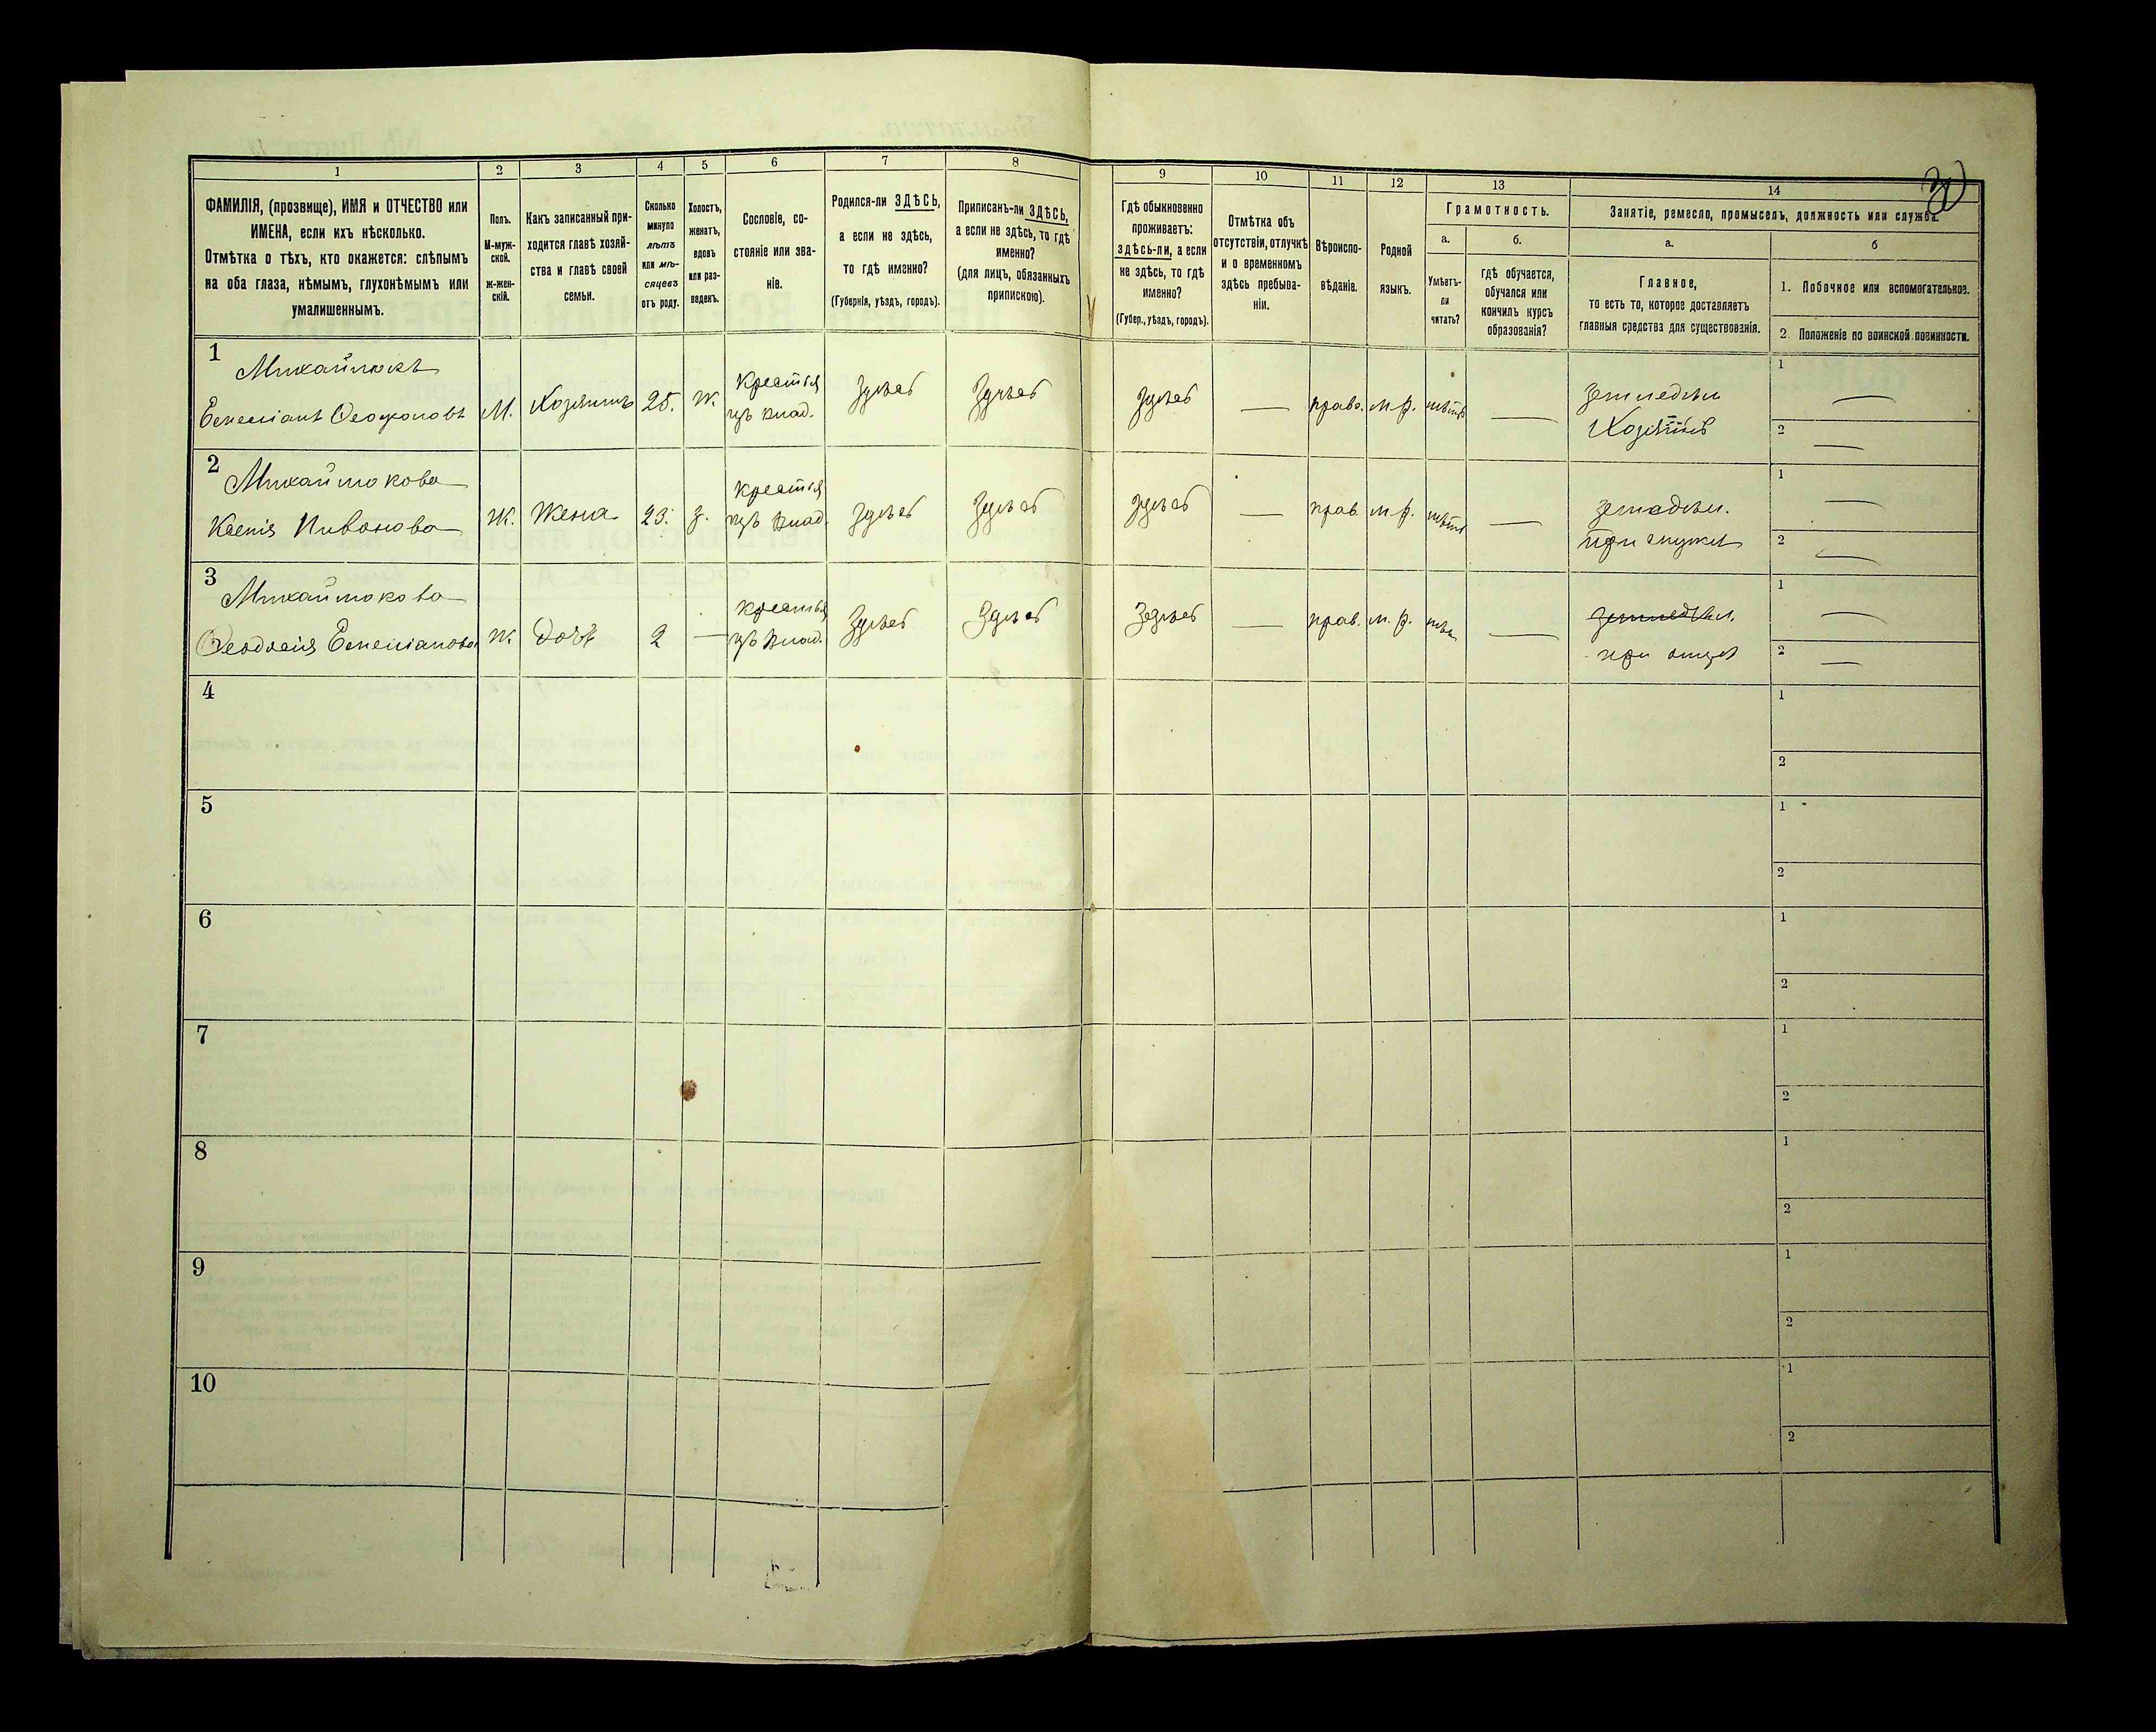 30
1 2 3 4 5 6 7 8 9 10 11 12 13 14
ФАМИЛІЯ, (прозвище), ИМЯ и ОТЧЕСТВО или
ИМЕНА, если ихъ нѣсколько.
Отмѣтка о тѣхъ, кто окажется: слѣпымъ
на оба глаза, нѣмымъ, глухонѣмымъ или
умалишеннымъ.
Полъ.
М-муж-
ской.
ж-жен-
скій.
Какъ записанный при-
ходится главѣ хозяй-
ства и главѣ своей
семьи.
Сколько
минуло
лѣтъ
или мѣ-
сяцевъ
отъ роду.
Холостъ,
женатъ,
вдовъ
или раз-
веденъ.
Сословіе, со-
стояніе или зва-
ніе.
Родился-ли ЗДѢСЬ,
а если не здѣсь,
то гдѣ именно?
(Губернія, уѣздъ, городъ).
Приписанъ-ли ЗДѢСЬ,
а если не здѣсь, то гдѣ
именно?
(для лицъ, обязанныхъ
припискою).
Гдѣ обыкновенно
проживаетъ:
здѣсь-ли, а если
не здѣсь, то гдѣ
именно?
(Губер., уѣздъ, городъ).
Отмѣтка объ
отсутствіи, отлучкѣ
и о временномъ
здѣсь пребыва-
ніи.
Вѣроиспо-
вѣданіе.
Родной
языкъ.
Грамотность.
а.
Умѣетъ-
ли
читать?
б.
гдѣ обучается,
обучался или
кончилъ курсъ
образованія?
Занятіе, ремесло, промыселъ, должность или служба.
а.
Главное,
то есть то, которое доставляетъ
главныя средства для существованія.
б
1. Побочное или вспомогательное.
2 Положеніе по воинской повинности.
1
Михайлюкъ
Емеліанъ Ѳеофоновъ
М.
Хозяинъ
25.
Ж
Крестья
изъ влад.
Здѣсь
Здѣсь
Здѣсь
—
право.
м.р.
нѣтъ
—
земледѣл
Хозяинъ
1 —
2 —
2
Михайлюкова
Ксенія Ивонова
Ж.
Жена
23.
з.
Крестья
изъ влад.
Здѣсь
Здѣсь
Здѣсь
—
прав.
м.р.
нѣтъ
—
земледѣл.
при мужѣ
1 —
2 —
3
Михайлюкова
Ѳеодосія Емеліанова
Ж.
Дочь
2
—
Крестья
изъ влад.
Здѣсь
Здѣсь
Здѣсь
—
прав.
м.р.
—
земледѣл.
при отцѣ
1 —
2 —
4
1
2
5
1
2
6
1
2
7
1
2
8
1
2
9
1
2
10
1
2